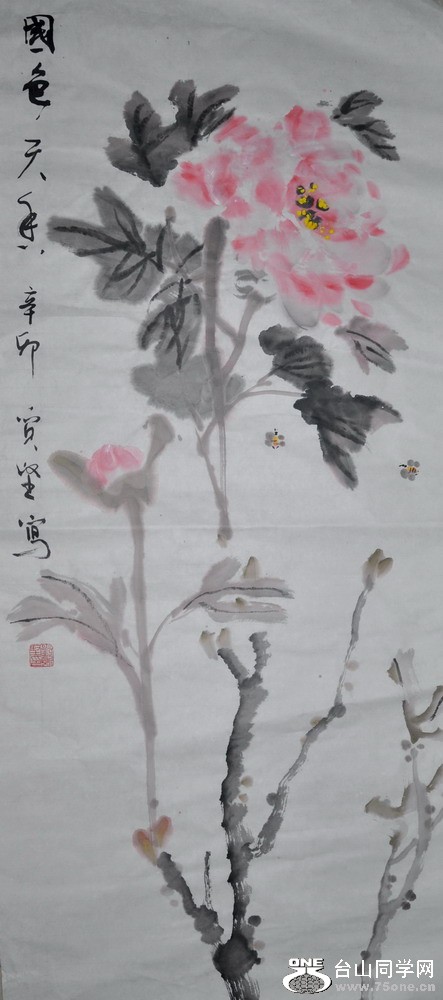 國色天香 辛卯 賢堅寫
ONE
台山同学网
www.75one.cn